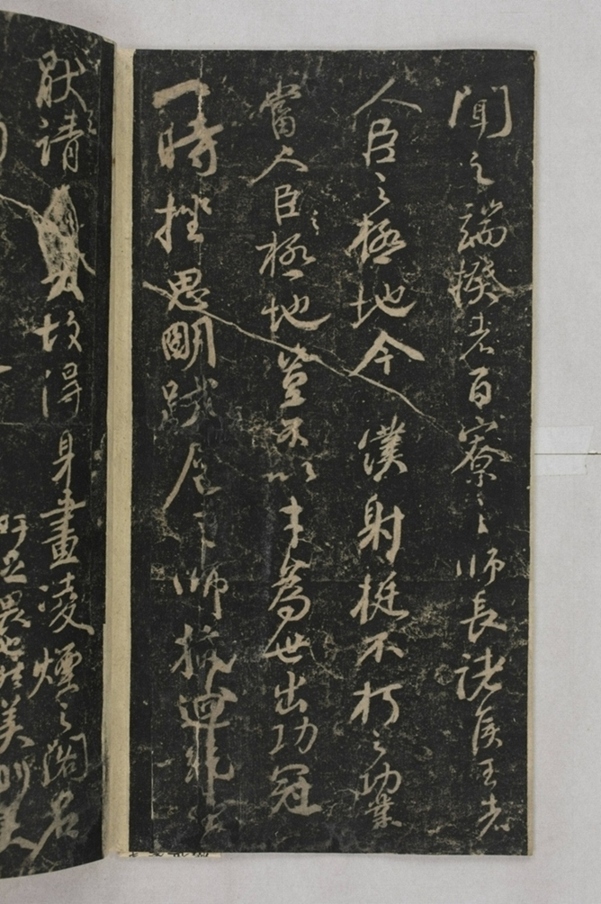 聞之端揆者百寮之師長諸侯王者
人臣之極地今僕射挺不朽之功業
當人臣之極地豈不以才為世出功冠
一時挫思明跋扈之師抗迴紇無
猒之請故得身畫凌煙之閣名
吁足畏也然美則美